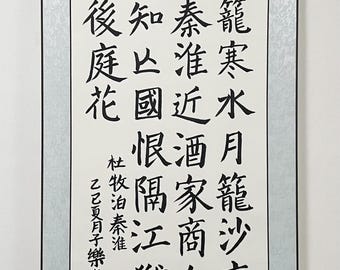 籠寒水月籠沙
秦淮近酒家商
知亡國恨隔江
後庭花
杜牧泊秦淮
乙巳夏月子樂